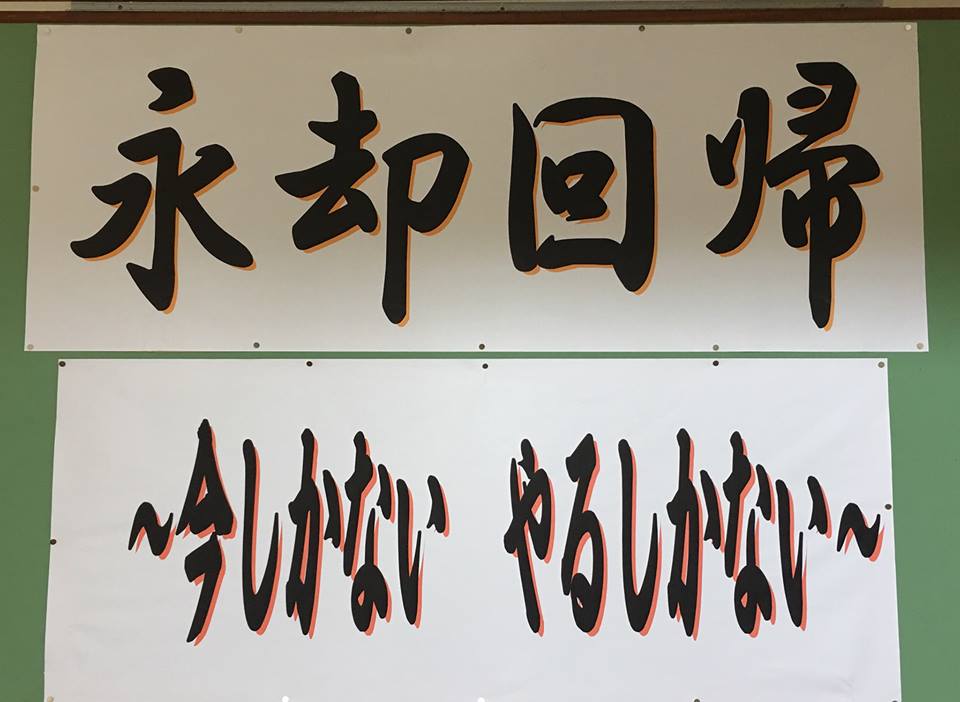 永却回帰
～今しかない　やるしかない～